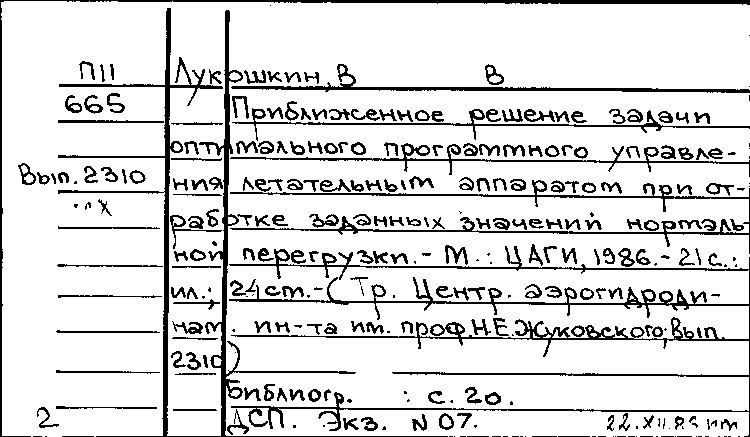 П11 Лукошкин, В В
665 Приближенное решение задачи
оптимального программного управле-
Вып. 2310 ния летательным аппаратом при от-
работке заданных значений нормаль-
ной перегрузки. - М.: ЦАГИ, 1986. - 21 с.:
ил.; 24 см. - (Тр. Центр. аэрогидроди-
нам. ин-та им. проф. Н.Е. Жуковского; Вып.
2310)
Библиогр. : с. 20.
2 ДСП. Экз. N 07.